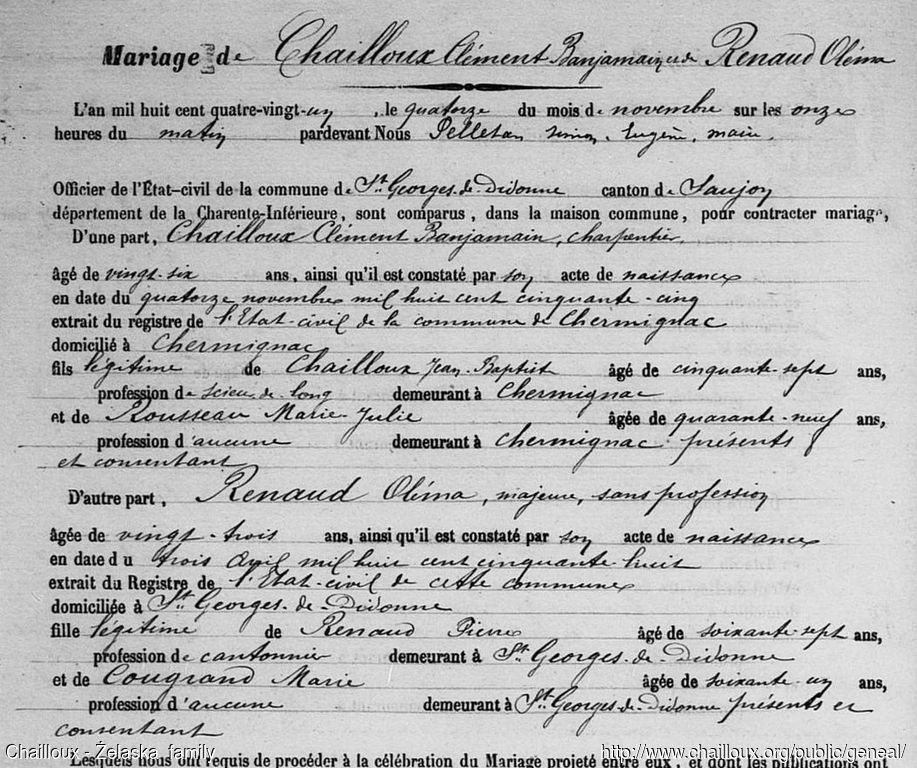 Mariage de Chailloux Clément Banjamain et de Renaud Oléma
L'an mil huit cent quatre-vingt-un, le quatorze du mois de novembre sur les onze
heures du matin pardevant Nous Pelletan Simon, Eugène, maire,
Officier de l'État-civil de la commune de St Georges-de-Didonne canton de Saujon
département de la Charente-Inférieure, sont comparus, dans la maison commune, pour contracter mariage,
D'une part, Chailloux Clément Banjamain, charpentier,
âgé de vingt-six ans, ainsi qu'il est constaté par son acte de naissance
en date du quatorze novembre mil huit cent cinquante-cinq
extrait du registre de l'Etat-civil de la commune de Chermignac
domicilié à Chermignac
fils légitime de Chailloux Jean-Baptist âgé de cinquante-sept ans,
profession de scieur de long demeurant à Chermignac
et de Rousseau Marie-Julie âgée de quarante-neuf ans,
profession d'aucune demeurant à Chermignac présents
et consentant
D'autre part, Renaud Oléma, majeure, sans profession
âgée de vingt-trois ans, ainsi qu'il est constaté par son acte de naissance
en date du trois avril mil huit cent cinquante-huit
extrait du Registre de l'Etat-civil de cette commune
domiciliée à St Georges-de-Didonne
fille légitime de Renaud Pierre âgé de soixante-sept ans,
profession de cantonnier demeurant à St Georges-de-Didonne
et de Cougrand Marie âgée de soixante-un ans,
profession d'aucune demeurant à St Georges-de-Didonne présents et
consentant
Lesquels nous ont requis de procéder à la célébration du Mariage projeté entre eux, et dont les publications ont
Chailloux - Želaska family http://www.chailloux.org/public/geneal/